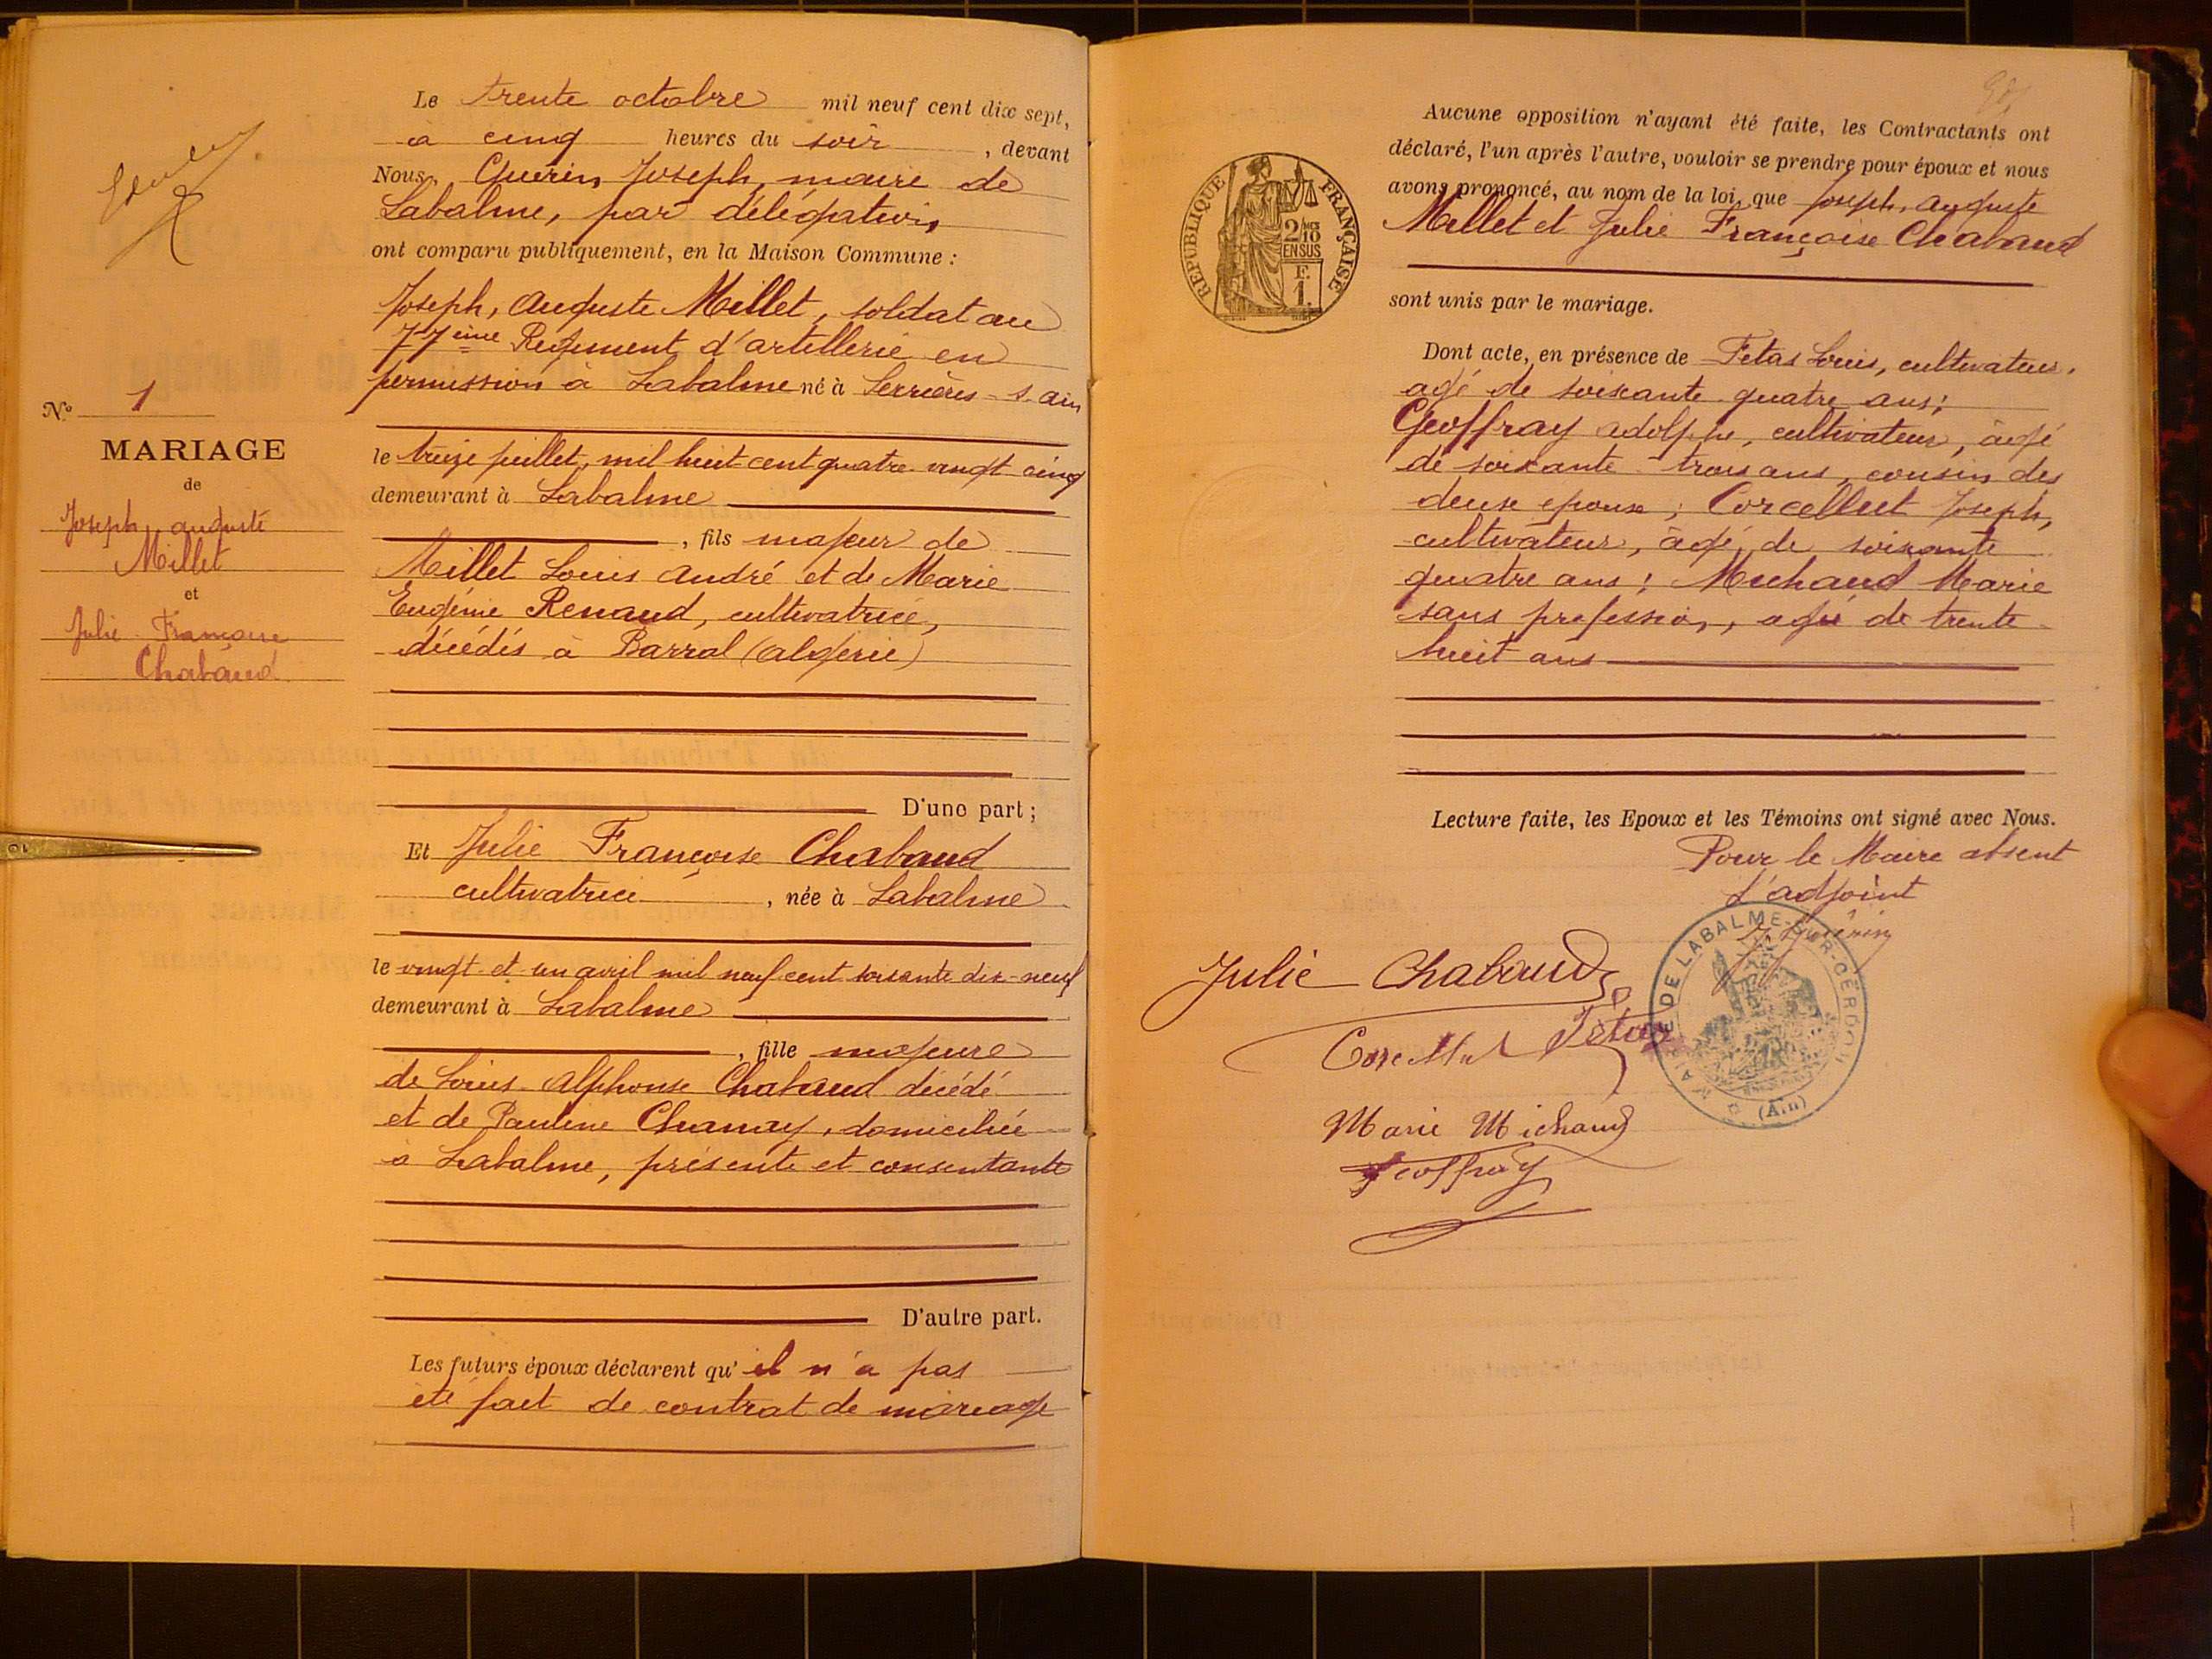 Le trente octobre mil neuf cent dix sept,
à cinq heures du soir, devant
Nous, Guerin Joseph, maire de
Labalme, par délégation
ont comparu publiquement, en la Maison Commune :
Joseph, Auguste Millet, soldat au
77ème Regiment d'artillerie en
permission à Labalme né à Serrières-s-ain
le treize juillet, mil huit cent quatre-vingt cinq
demeurant à Labalme
, fils majeur de
Millet Louis André et de Marie
Eugénie Renaud, cultivatrice,
décédés à Barral (algérie)
D'une part ;
Et Julie Françoise Chabaud
cultivatrice, née à Labalme
le vingt-et-un avril mil neuf cent soixante dix-neuf
demeurant à Labalme
, fille majeure
de Louis-Alphonse Chabaud décédé
et de Pauline Chanay, domiciliée
à Labalme, présente et consentante
D'autre part.
Les futurs époux déclarent qu'il n'a pas
été fait de contrat de mariage
No 1
MARIAGE
de
Joseph, auguste
Millet
et
Julie-Françoise
Chabaud
RÉPUBLIQUE FRANÇAISE
2/10
EN SUS
F.
1.
Aucune opposition n'ayant été faite, les Contractants ont
déclaré, l'un après l'autre, vouloir se prendre pour époux et nous
avons prononcé, au nom de la loi, que Joseph, auguste
Millet et Julie Françoise Chabaud
sont unis par le mariage.
Dont acte, en présence de Fetas Louis, cultivateur,
agé de soixante-quatre ans ;
Geoffray adolphe, cultivateur, âgé
de soixante-trois ans, cousin des
deux epoux ; Corcellut Joseph,
cultivateur, âgé de soixante
quatre ans ; Michaud Marie
sans profession, agée de trente-
huit ans
Lecture faite, les Epoux et les Témoins ont signé avec Nous.
Pour le Maire absent
L'adjoint
J Guérin
MAIRIE DE LABALME-SUR-CERDON
(Ain)
Julie Chabaud
Corcellut Fetas
Marie Michaud
Geoffray